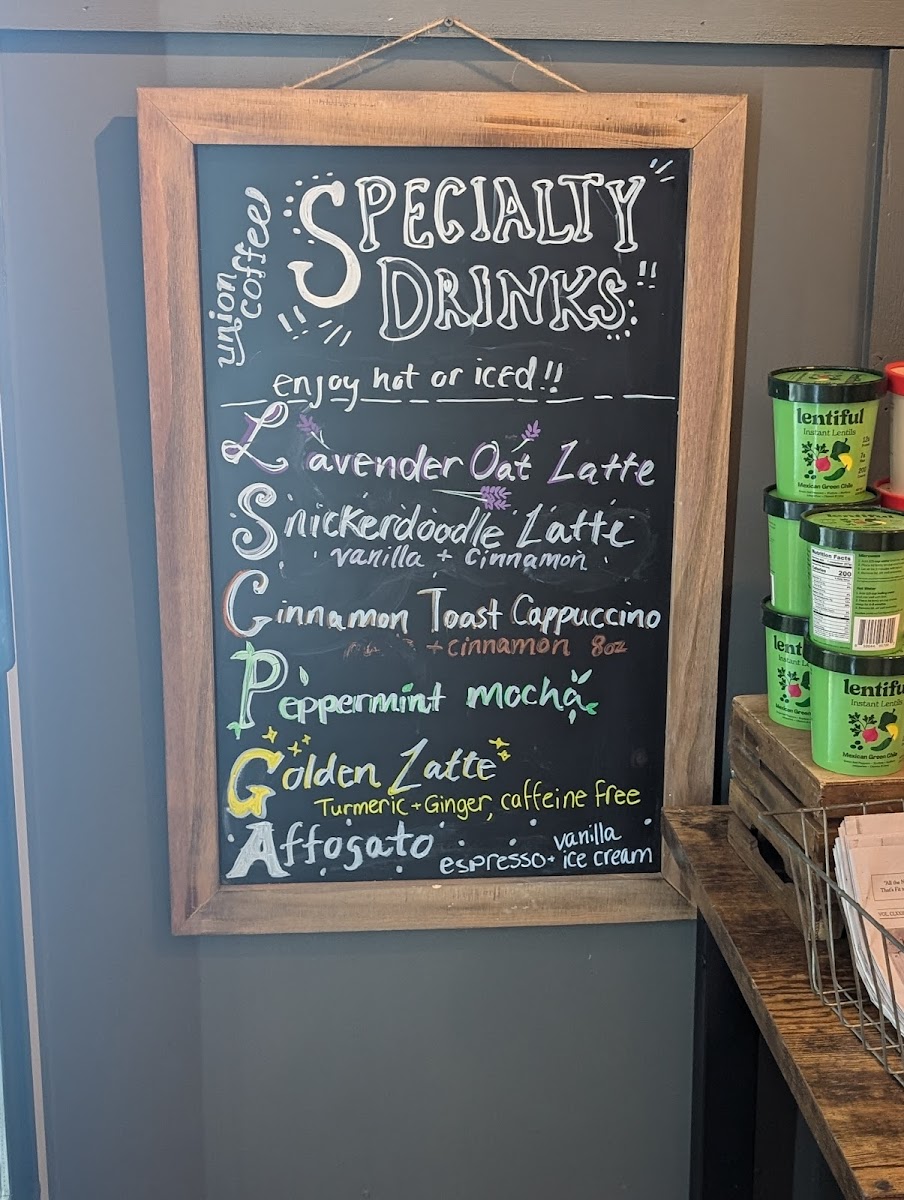 union
coffee
SPECIALTY
DRINKS
enjoy hot or iced!!
Lavender Oat Latte
Snickerdoodle Latte
vanilla + cinnamon
Cinnamon Toast Cappuccino
+cinnamon 8oz
Peppermint mocha
Golden Latte
Turmeric + Ginger, caffeine free
Affogato
vanilla
espresso + ice cream
lentiful
Instant Lentils
Mexican Green Chile
Nutrition Facts
Calories 200
lent
lentiful
Instant Lentils
Mexican Green Chile
"All the
That's Fit